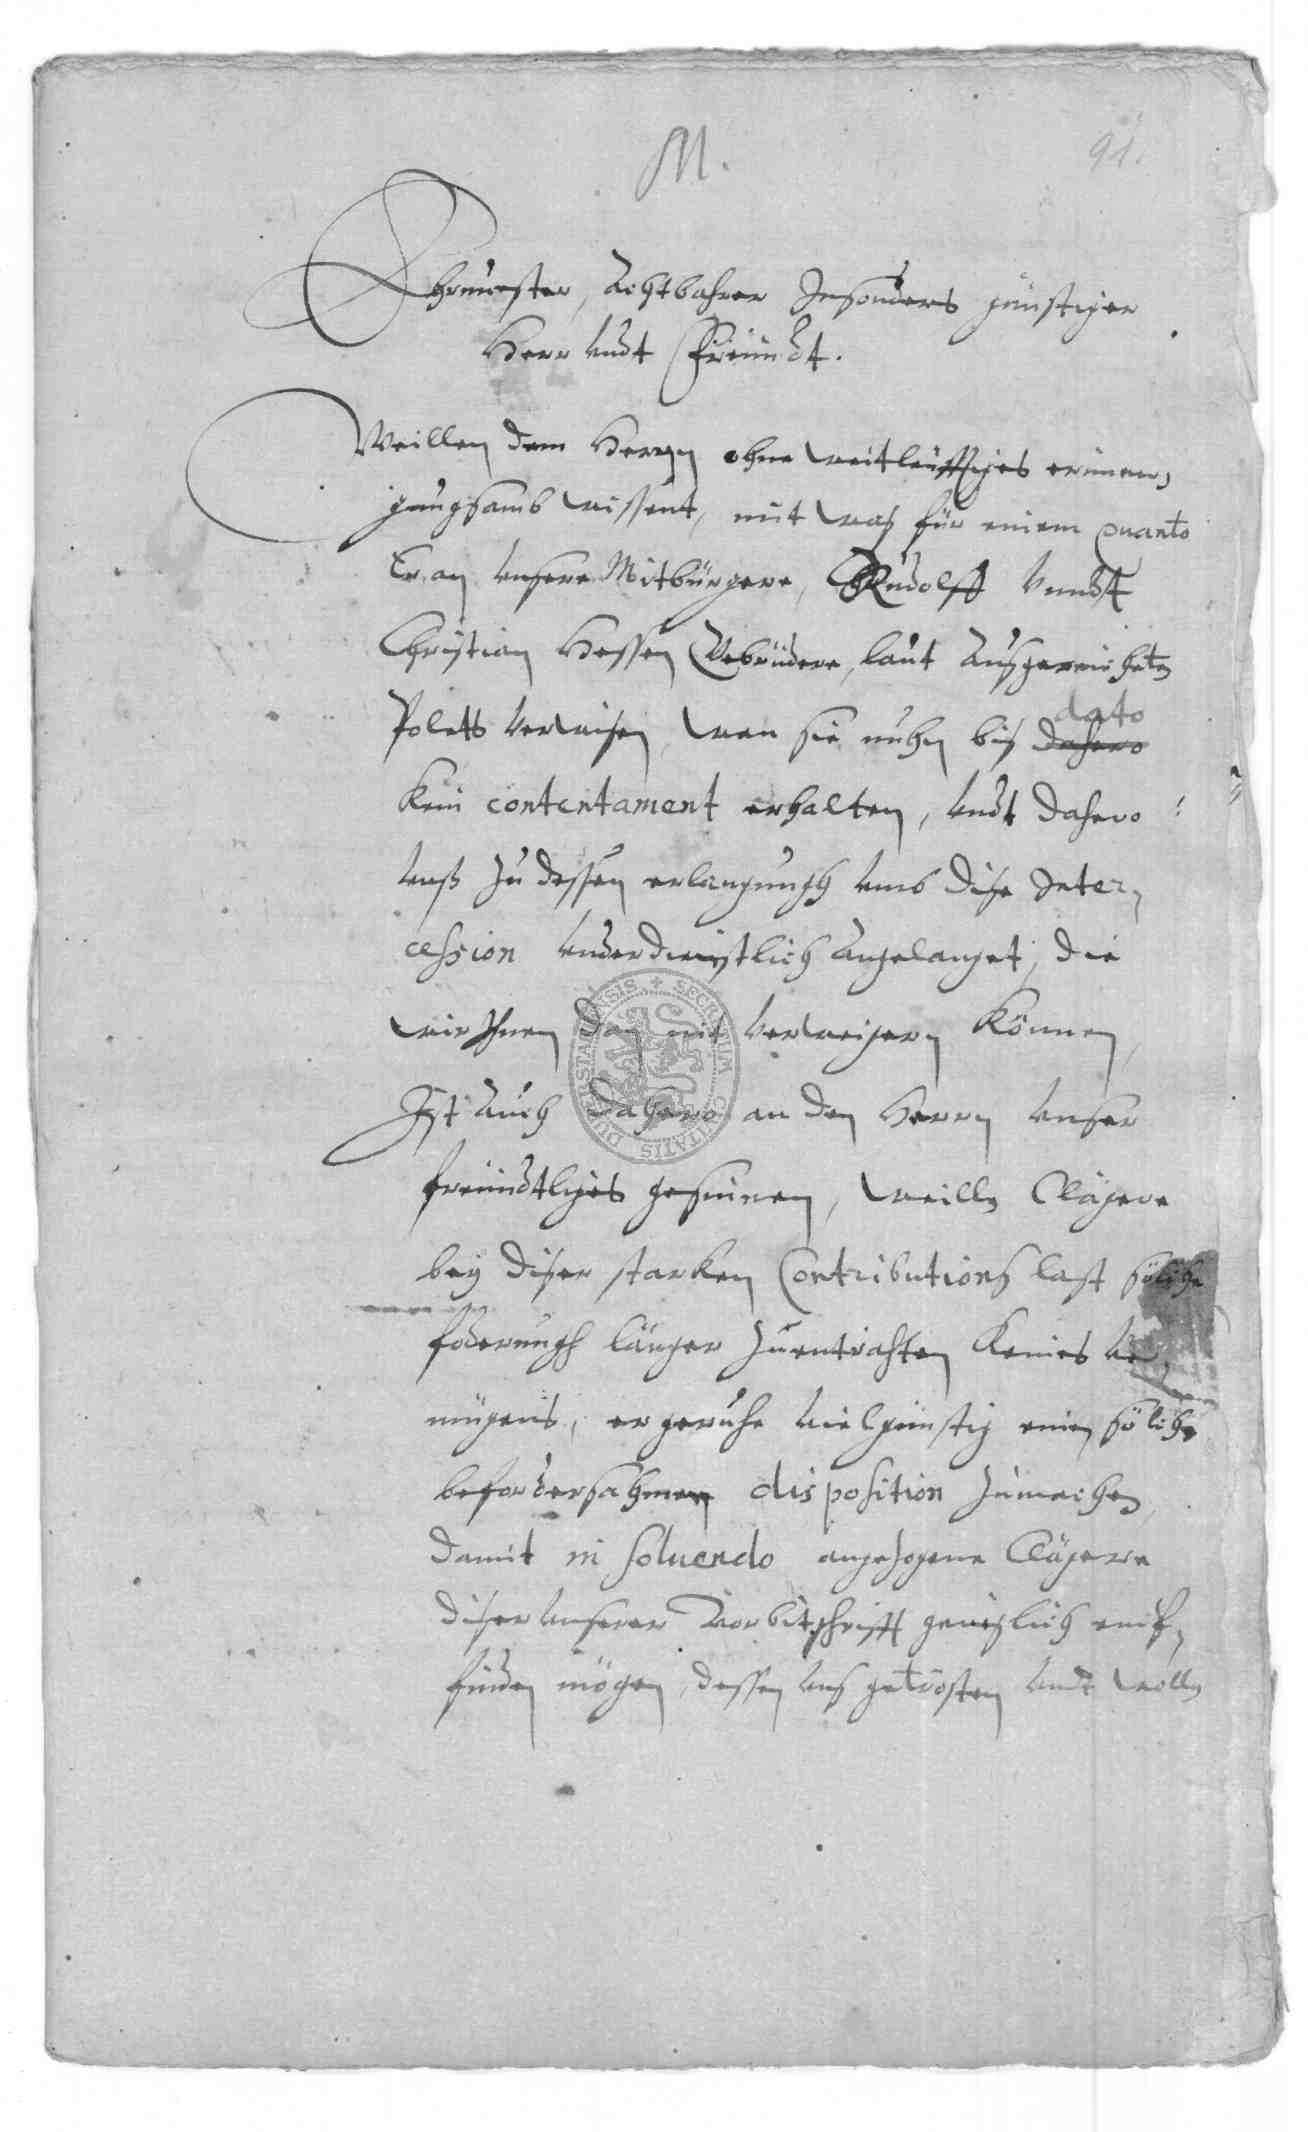 M.
91.
Ehrnvester, Achtbahrer Insonders günstiger
Herr undt Freundt.
Weillen dem Herrn ohne weitleufftiges erinnern,
gnugsamb wissent, mit waß für einem quanto
Er an unsere Mitbürgere, Rudolff unndt
Christian Hessen Gebrüdere, laut Außgereichten
Poletts verwisen, wan sie nuhn biß dahero dato
kein contentament erhalten, undt dahero
unß zu dessen erlangungh umb dise Inter,
cession underdienstlich angelanget, die
wir Ihnen dan nit verweigern können,
Ist auch dahero an den Herrn unser
freundtliges gesinnen, weilln Clägere
bey diser starken Contributions last söliche
foderungh länger zuentrahten keines ver,
mügens, er geruhe vielgünstig einen söliche
befordersahmen disposition zumachen,
damit in soluendo angezogene Clägere
diser unserer Vorbitschrifft genislich emp,
finden mögen, dessen unß getrösten undt wolln
SECRETUM CIVITATIS DUDERSTADENSIS